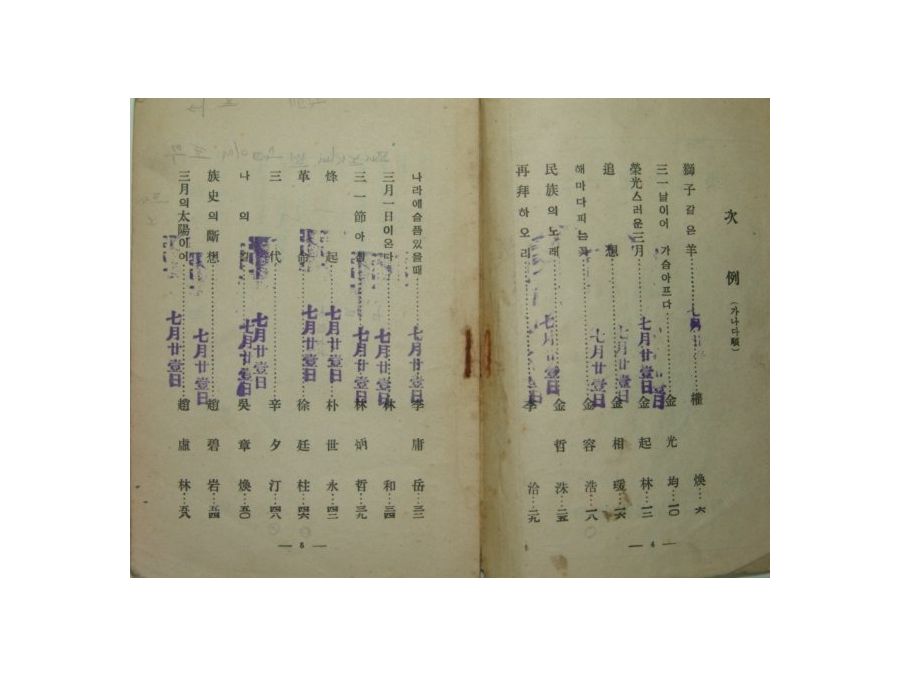 次例 (가나다順)
獅子 같은 羊 權煥 六
三一날이어 가슴아프다 金光均 一〇
榮光스러운 三月 金起林 一三
追想 金相瑗 一六
해마다피는꽃 金容浩 一八
民族의 노래 金哲洙 二五
再拜하오리 李洽 二九
— 4 —
나라에슬픔있을때 李庸岳 三三
三月一日이온다 林和 三四
三一節아 林炳哲 三九
烽起 朴世永 四二
革命 徐廷柱 四六
三代 辛夕汀 四八
나의 吳章煥 五〇
族史의 斷想 趙碧岩 五四
三月의 太陽이어 趙虛林 五八
— 5 —
七月廿壹日
七月廿壹日
七月廿壹日
七月廿壹日
七月廿壹日
七月廿壹日
七月廿壹日
七月廿壹日
七月廿壹日
七月廿壹日
七月廿壹日
七月廿壹日
七月廿壹日